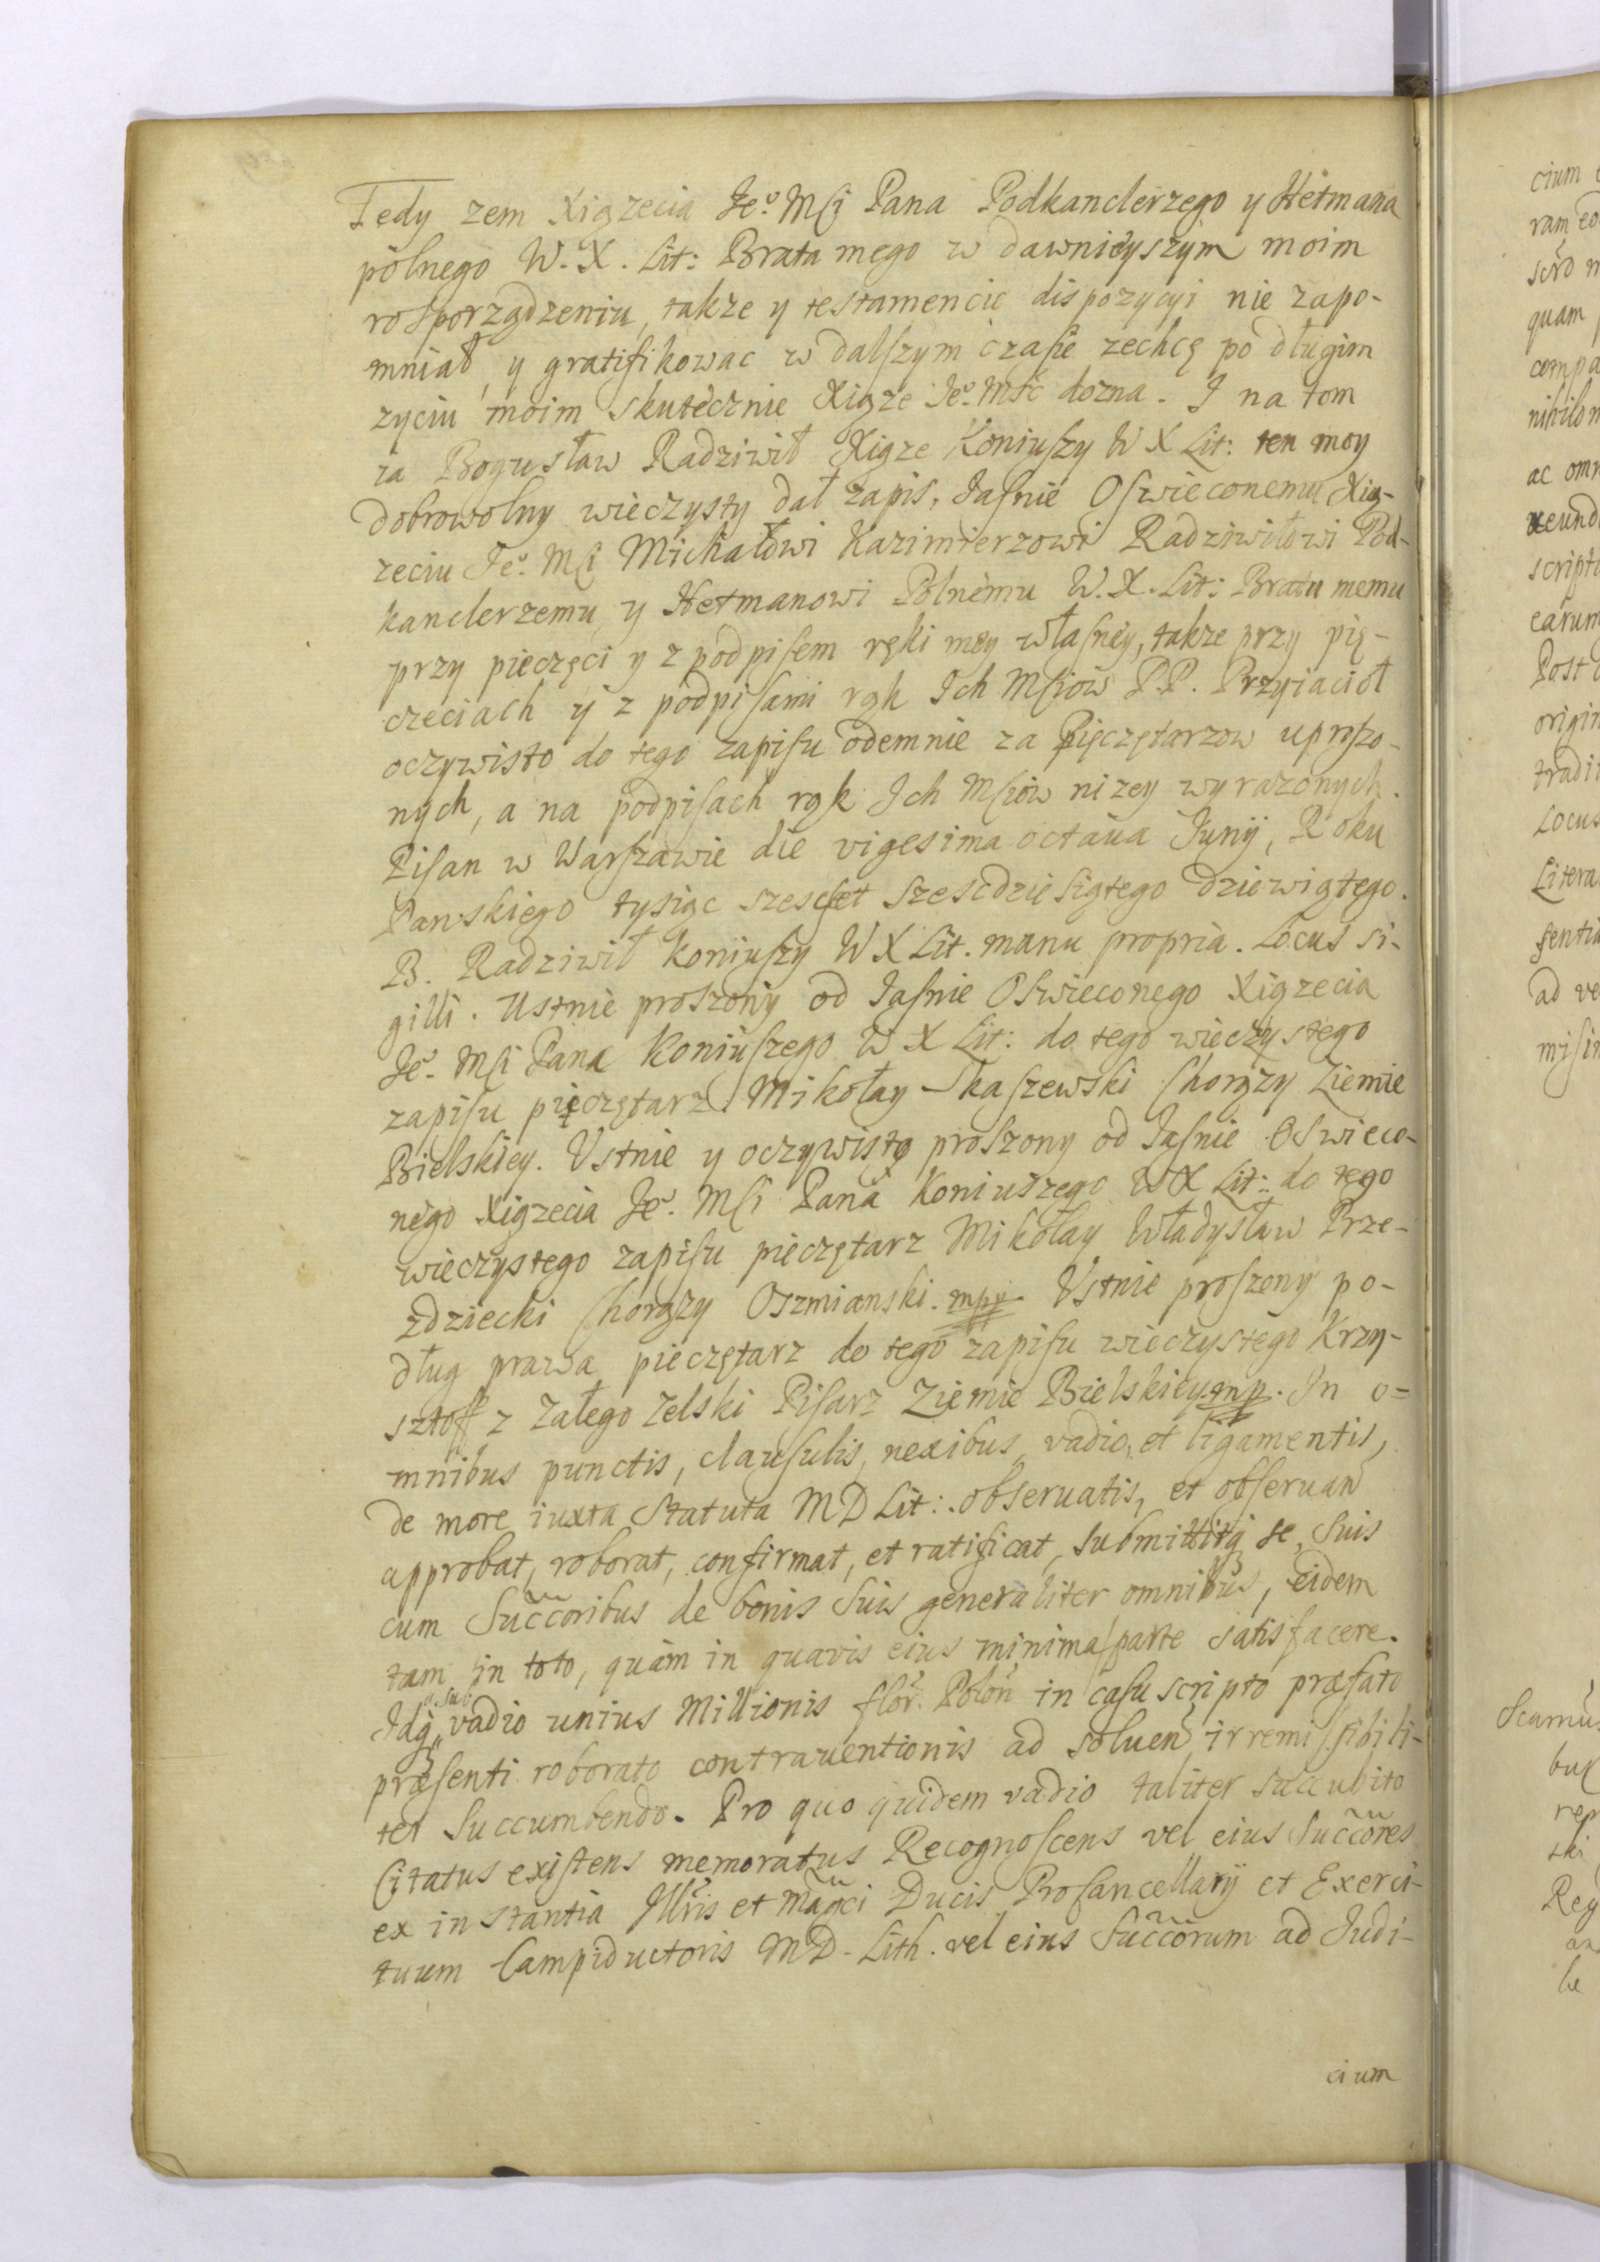 Tedy zem Xiązecia Je.º Mſi Pana Podkanclerzego y Hetmana
polnego W. X. Lit: Brata mego w dawnieyszym moim
rosporządzeniu, takze y testamencie dispozycyi nie zapo-
mniał, y gratifikowac w dalſzym czaſie zechcę po długim
zyciu moim skutecznie Xiąze Je.º Mśc dozna. J na tom
ia Bogusław Radziwił Xiąze Koniuſzy W X Lit: ten moy
dobrowolny wieczysty dał zapis, Jaſnie Oſwieconemu Xią-
zeciu Je.º Mſi Michałowi Kazimierzowi Radziwiłowi Pod-
kanclerzemu y Hetmanowi Polnemu W. X. Lit: Bratu memu
przy pieczęci y z podpiſem ręki mey własney, takze przy pię-
czeciach y z podpiſami rąk Jch Mſiow P.P. Przyiacioł
oczywisto do tego zapiſu odemnie za Pięczętarzow uproſzo-
nych, a na podpiſach rąk Jch Mſiow nizey wyrazonych.
Piſan w Warſzawie die vigesima octaua Junij, Roku
Panskiego tysiąc szescſet szescdzieſiątego dziewiątego.
B. Radziwił Koniuſzy W X Lit. manu propria. Locus si-
gilli. Ustnie proszony od Jaſnie Oſwieconego Xiązecia
Je.º Mſi Pana Koniuſzego W X Lit: do tego wieczystego
zapiſu pięczętarz Mikołay Skaszewski Chorązy Ziemie
Bielskiey. Vstnie y oczywisto proszony od Jaſnie Oswieco-
nego Xiązecia Je.º Mſi Pana Koniuszego W X Lit: do tego
wieczystego zapiſu pieczętarz Mikołay Władysław Prze-
zdziecki Chorązy Oszmianski. mpp. Vstnie proſzony po-
dług prawa pieczętarz do tego zapiſu wieczystego Krzy-
sztoff z Załego Zelski Piſarz Ziemie Bielskiey mp. Jn o=
mnibus punctis, clauſulis, nexibus, vadio, et ligamentis,
de more iuxta Statuta MD Lit: obseruatis, et obſeruan
approbat, roborat, confirmat, et ratificat, submittitq̃ se, suis
cum Succ̃oribus de bonis suis generaliter omnibus, eidem
tam in toto, quàm in quavis eius minima parte satisfacere.
Jdq̃ sub vadio unius Millionis flor̃. Polon̄ in caſu scripto præfato
præſenti roborato contrauentionis ad soluen̄ irremiſſibili-
ter succumbendo. Pro quo quidem vadio taliter succubito
Citatus exiſtens memoratus Recognoſcens vel eius Succ̃ores
ex instantia Jllr̃is et Magc̃i Ducis ProCancellarÿ et Exerci-
tuum Campiductoris MD. Lith. vel eius Succ̃orum ad Judi-
cium